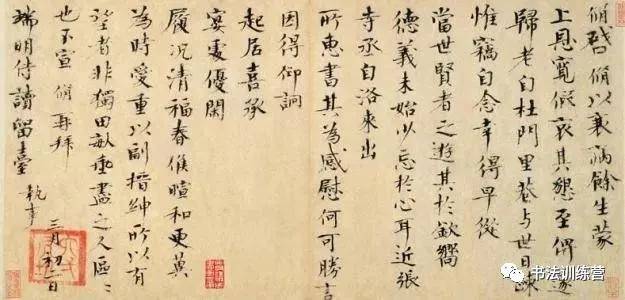 脩啓脩以衰病餘生蒙
上恩寬假哀其懇至俾遂
歸老自杜門里巷與世日疎
惟竊自念幸得早從
當世賢者之遊其於欽嚮
德義未始少忘於心耳近張
寺丞自洛來出
所惠書其為感慰何可勝言
因得仰詢
起居喜承
宴處優閑
履況清福春候暄和更冀
為時愛重以副搢紳所以有
望者非獨田畝垂盡之人區〻
也不宣 脩再拜
端明侍讀留臺 執事
三月初二日
书法训练营